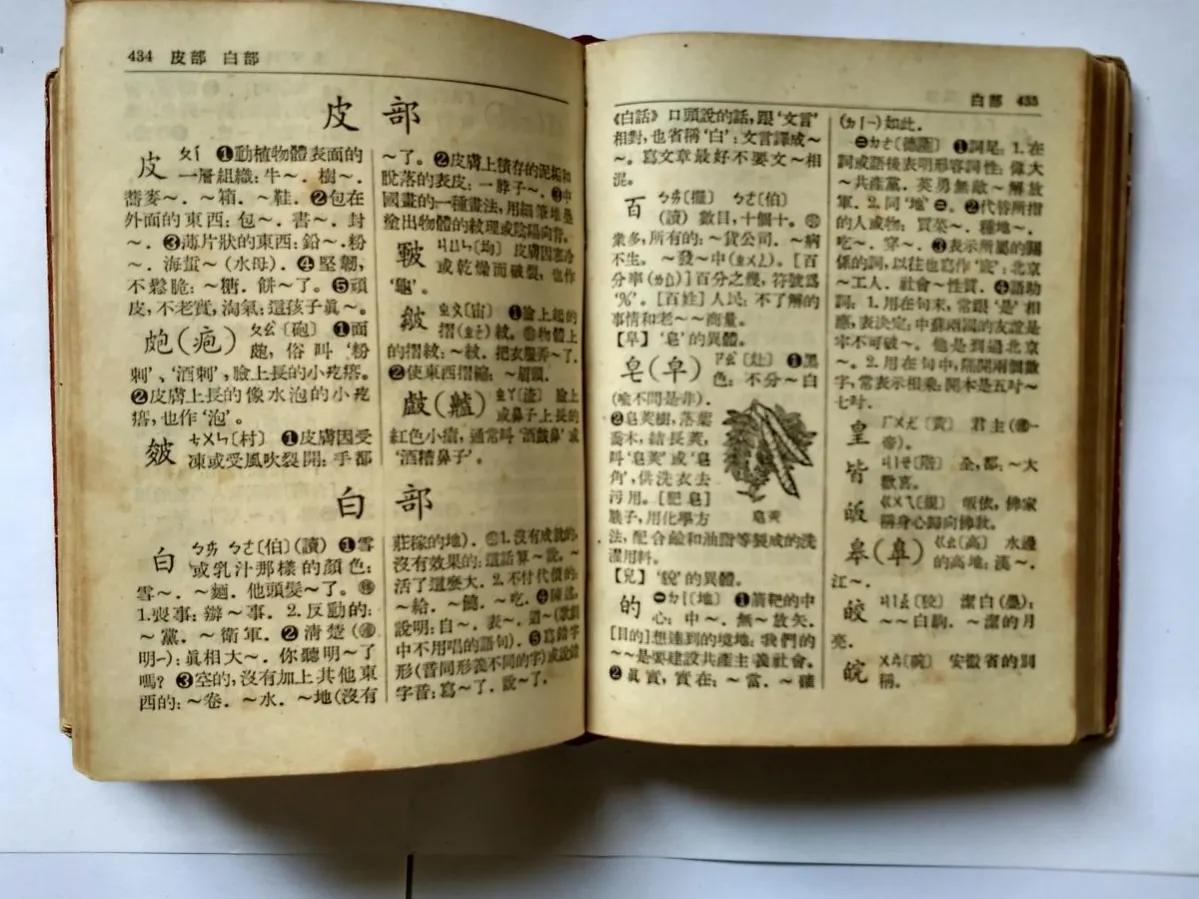 434 皮部 白部
皮部
皮 ㄆㄧ ❶動植物體表面的
一層組織:牛～.樹～.
蕎麥～.～箱.～鞋.❷包在
外面的東西:包～.書～.封
～.❸薄片狀的東西:鉛～.粉
～.海蜇～(水母).❹堅韌,
不鬆脆:～糖.餅～了.❺頭
皮,不老實,淘氣:這孩子眞～.
皰(疱) ㄆㄠ〔砲〕❶面
皰,俗叫‘粉
刺’、‘酒刺’,臉上長的小疙瘩.
❷皮膚上長的像水泡的小疙
瘩,也作‘泡’.
皴 ㄘㄨㄣ〔村〕❶皮膚因受
凍或受風吹裂開:手都
～了.❷皮膚上積存的泥垢和
脫落的表皮:一脖子～.❸中
國畫的一種畫法,用細筆堆墨
塗出物體的紋理或陰陽向背.
皸 ㄐㄩㄣ〔均〕皮膚因寒冷
或乾燥而破裂,也作
‘龜’.
皺 ㄓㄡ〔宙〕❶臉上起的
摺(ㄓㄜ)紋.㊗物體上
的摺紋:～紋.把衣服弄～了.
❷使東西摺縮:～眉頭.
皻(齇) ㄓㄚ〔渣〕臉上
或鼻子上長的
紅色小瘡,通常叫‘酒皻鼻’或
‘酒糟鼻子’.
白部
白 ㄅㄞ ㄅㄛ〔伯〕(讀)❶雪
或乳汁那樣的顏色:
雪～.～麵.他頭髮～了.
1.喪事:辦～事. 2.反動的:
～黨.～衛軍.❷清楚(
明—):眞相大～.你聽明～了
嗎?❸空的,沒有加上其他東
西的:～卷.～水.～地(沒有
莊稼的地).1.沒有成就的,
沒有效果的:這話算～說.～
活了這麼大. 2.不付代價的:
～給.～饒.～吃.❹陳述,
說明:自～.表～.道～(歌劇
中不用唱的語句).❺寫錯字
形(音同形義不同的字)或說錯
字音:寫～了.說～了.
白部 435
《白話》口頭說的話,跟‘文言’
相對,也省稱‘白’:文言譯成～
～.寫文章最好不要文～相
混.
百 ㄅㄞ〔擺〕ㄅㄛ〔伯〕
(讀)數目,十個十.
衆多,所有的:～貨公司.～病
不生.～發～中(ㄓㄨㄥ).[百
分率(ㄌㄩ)]百分之幾,符號爲
‘%’.[百姓]人民:不了解的
事情和老～～商量.
【皁】‘皂’的異體.
皂(皁) ㄗㄠ〔灶〕❶黑
色:不分～白
(喻不問是非).
❷皂莢樹,落葉
喬木,結長莢,
叫‘皂莢’或‘皂
角’,供洗衣去
污用.[肥皂]
胰子,用化學方
皂莢
法,配合鹼和油脂等製成的洗
濯用料.
【皃】‘貌’的異體.
的 ㊀ㄉㄧ〔地〕❶箭靶的中
心:中～.無～放矢.
[目的]想達到的境地:我們的
～～是要建設共產主義社會.
❷眞實,實在:～當.～確
(ㄉㄧ—)如此.
㊁ㄉㄜ〔德〕❶詞尾: 1.在
詞或語後表明形容詞性:偉大
～共產黨.英勇無敵～解放
軍. 2.同‘地’㊁.❷代替所指
的人或物:買菜～.種地～.
吃～.穿～.❸表示所屬的關
係的詞,以往也寫作‘底’:北京
～工人.社會～性質.❹語助
詞: 1.用在句末,常跟‘是’相
應,表決定:中蘇兩國的友誼是
牢不可破～.他是到過北京
～. 2.用在句中,隔開兩個數
字,常表示相乘:開本是五吋～
七吋.
皇 ㄏㄨㄤ〔黃〕君主(—
帝).
皆 ㄐㄧㄝ〔階〕全,都:～大
歡喜.
皈 ㄍㄨㄟ 皈依,佛家
稱身心歸向佛敎.
皋(臯) ㄍㄠ〔高〕水邊
的高地:漢～.
江～.
皎 ㄐㄧㄠ〔狡〕潔白(疊):
～～白駒.～潔的月
亮.
皖 ㄨㄢ〔碗〕安徽省的別
稱.